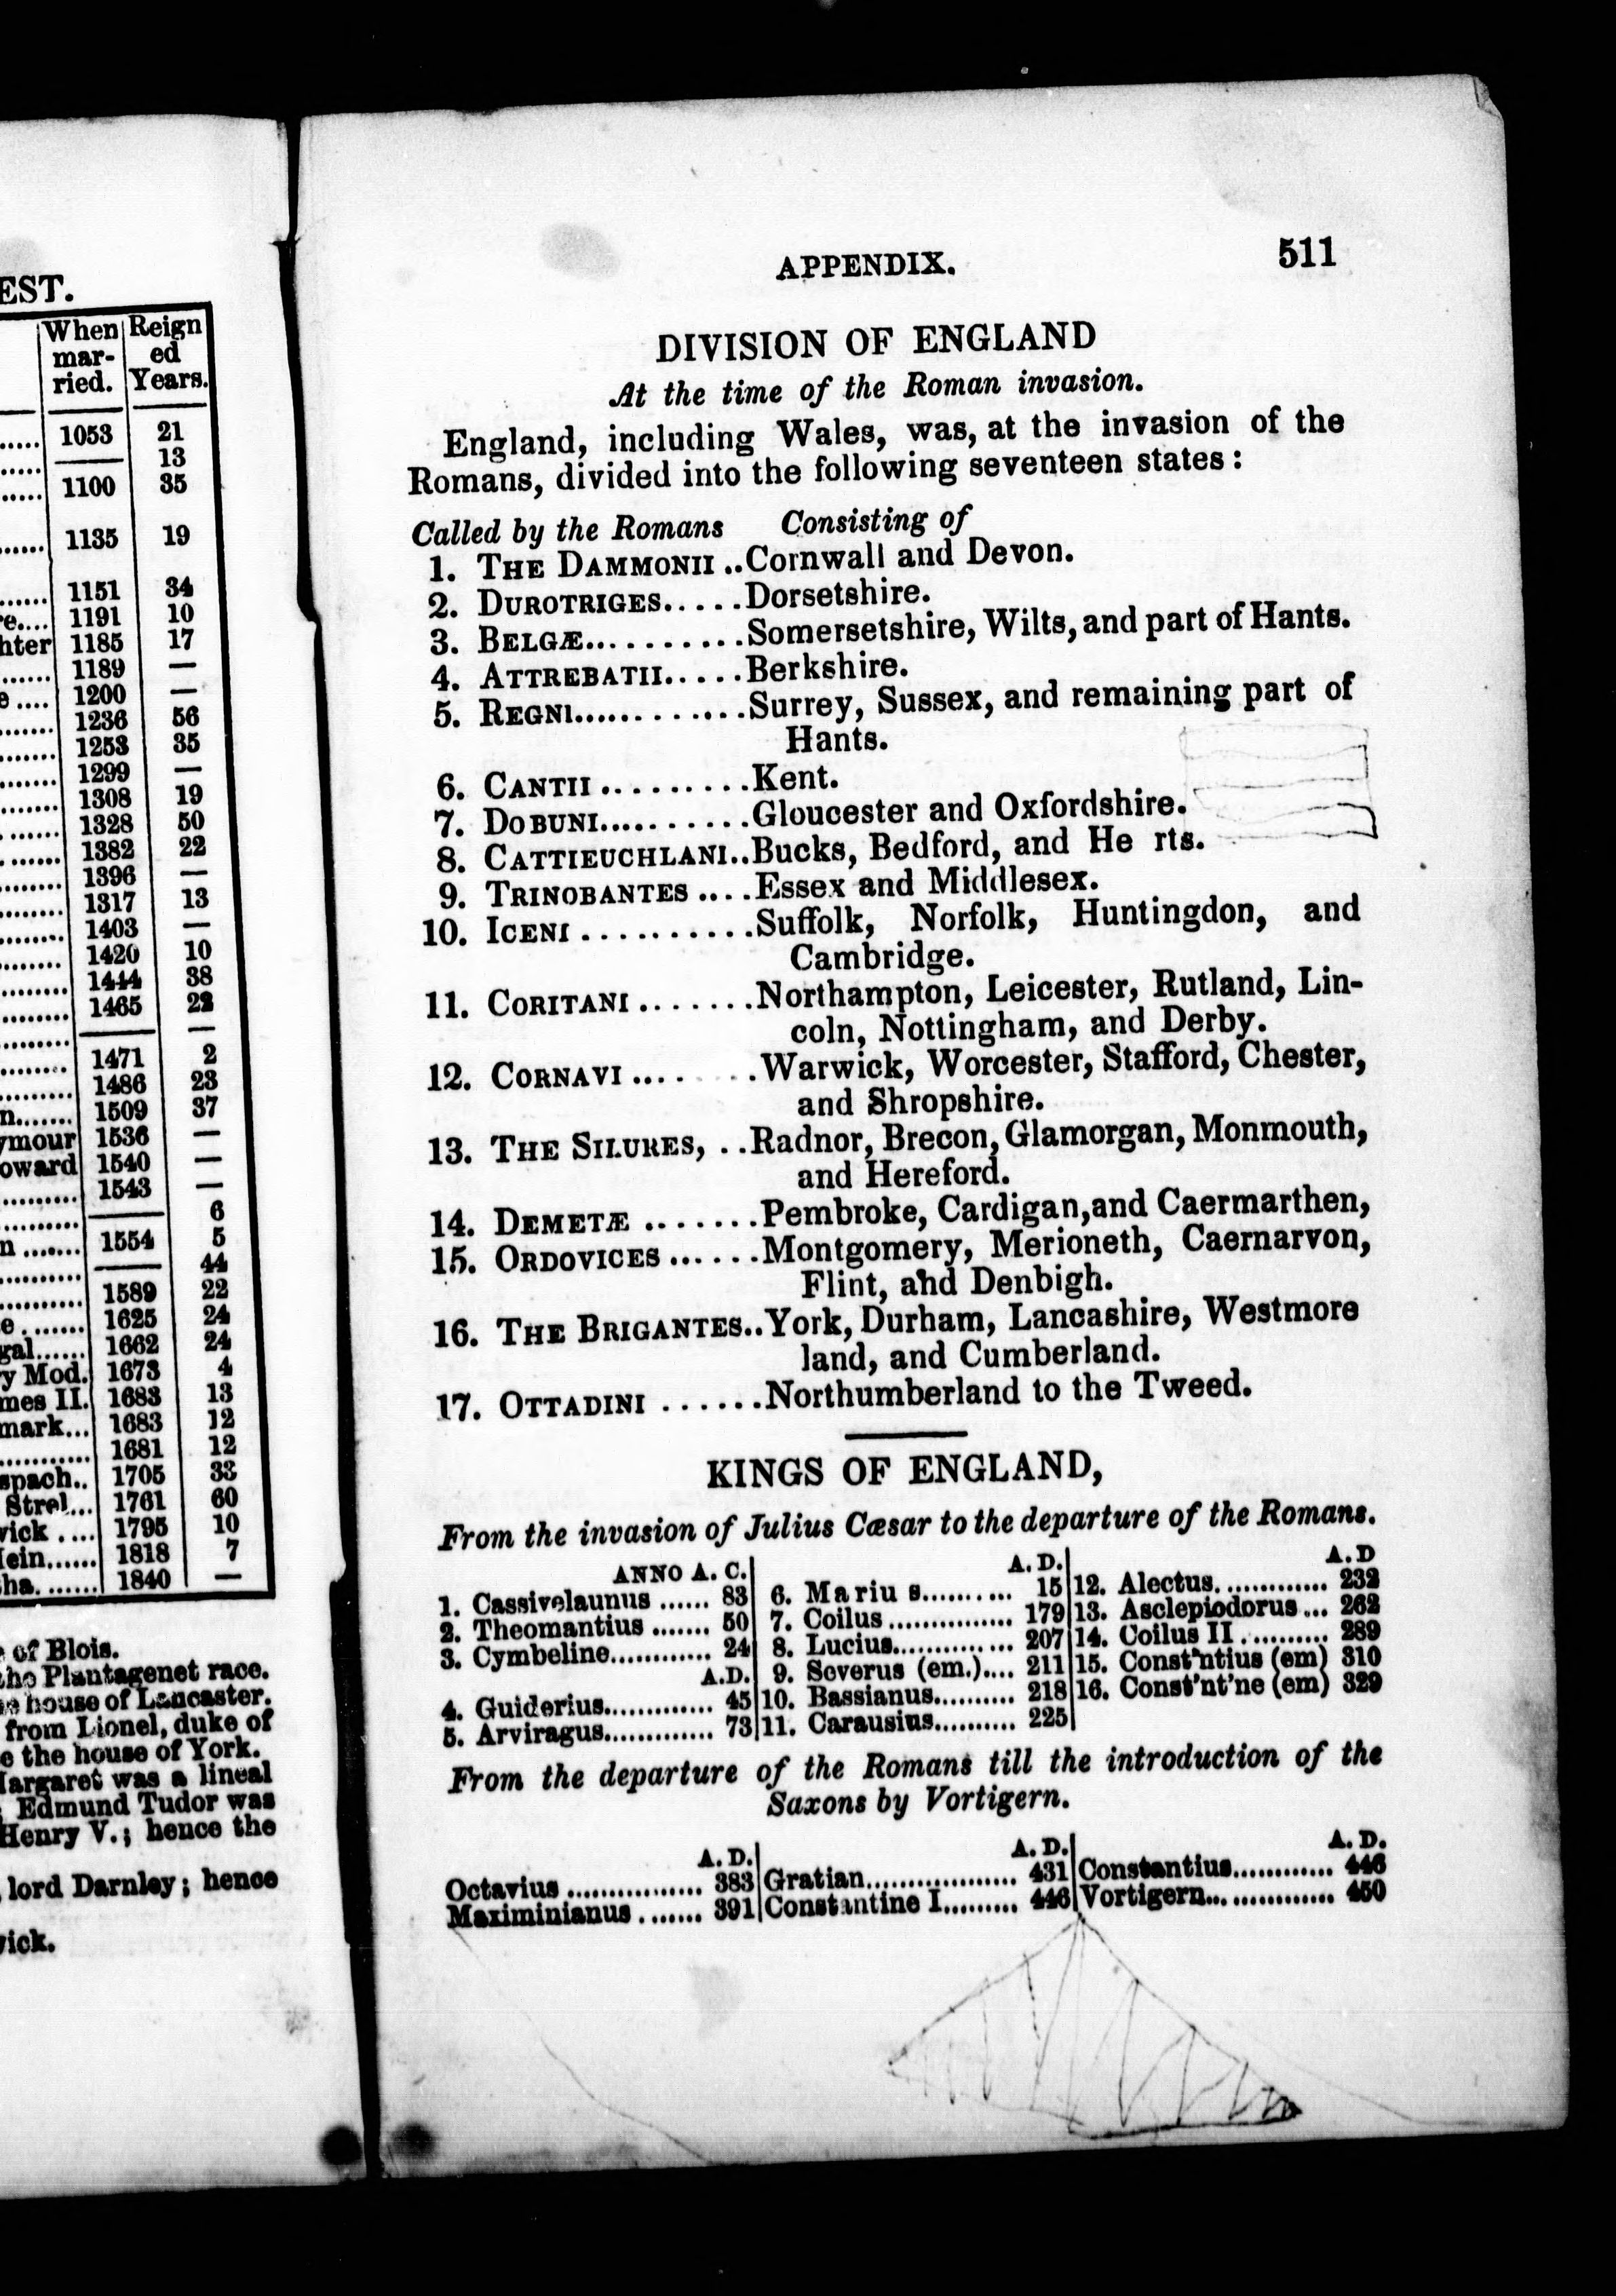 EST.
When Reign
mar- ed
ried. Years.
..... 1053 21
..... 13
..... 1100 35
...... 1135 19
...... 1151 34
re.... 1191 10
hter 1185 17
....... 1189 —
e .... 1200 —
....... 1236 56
....... 1253 35
....... 1299 —
........ 1308 19
....... 1328 50
....... 1382 22
........ 1396 —
........ 1317 13
........ 1403 —
........ 1420 10
......... 1444 38
......... 1465 22
......... —
......... 1471 2
......... 1486 23
n....... 1509 37
ymour 1536 —
oward 1540 —
.......... 1543 —
.......... 6
n ....... 1554 5
.......... 44
.......... 1589 22
e ........ 1625 24
gal...... 1662 24
y Mod. 1673 4
mes II. 1683 13
mark... 1683 12
........... 1681 12
spach.. 1705 33
Strel... 1761 60
wick .... 1795 10
lein...... 1818 7
tha. ....... 1840 —
of Blois.
the Plantagenet race.
house of Lancaster.
from Lionel, duke of
e the house of York.
Margaret was a lineal
; Edmund Tudor was
Henry V.; hence the
, lord Darnley; hence
wick.
APPENDIX. 511
DIVISION OF ENGLAND
At the time of the Roman invasion.
England, including Wales, was, at the invasion of the
Romans, divided into the following seventeen states:
Called by the Romans Consisting of
1. THE DAMMONII ..Cornwall and Devon.
2. DUROTRIGES.....Dorsetshire.
3. BELGÆ..........Somersetshire, Wilts, and part of Hants.
4. ATTREBATII.....Berkshire.
5. REGNI............Surrey, Sussex, and remaining part of
Hants.
6. CANTII ..........Kent.
7. DOBUNI...........Gloucester and Oxfordshire.
8. CATTIEUCHLANI..Bucks, Bedford, and He rts.
9. TRINOBANTES ....Essex and Middlesex.
10. ICENI ...........Suffolk, Norfolk, Huntingdon, and
Cambridge.
11. CORITANI .......Northampton, Leicester, Rutland, Lin-
coln, Nottingham, and Derby.
12. CORNAVI .......Warwick, Worcester, Stafford, Chester,
and Shropshire.
13. THE SILURES, ..Radnor, Brecon, Glamorgan, Monmouth,
and Hereford.
14. DEMETÆ .......Pembroke, Cardigan,and Caermarthen,
15. ORDOVICES ......Montgomery, Merioneth, Caernarvon,
Flint, and Denbigh.
16. THE BRIGANTES..York, Durham, Lancashire, Westmore
land, and Cumberland.
17. OTTADINI ......Northumberland to the Tweed.
KINGS OF ENGLAND,
From the invasion of Julius Cæsar to the departure of the Romans.
ANNO A. C.
1. Cassivelaunus ...... 83
2. Theomantius ....... 50
3. Cymbeline............ 24
A.D.
4. Guiderius............. 45
5. Arviragus............. 73
A.D.
6. Mariu s.......... 15
7. Coilus ............... 179
8. Lucius............... 207
9. Severus (em.).... 211
10. Bassianus.......... 218
11. Carausius.......... 225
A.D
12. Alectus. ............. 232
13. Asclepiodorus ... 262
14. Coilus II ........... 289
15. Const'ntius (em) 310
16. Const'nt'ne (em) 329
From the departure of the Romans till the introduction of the
Saxons by Vortigern.
A.D.
Octavius ................ 383
Maximinianus ........ 391
A.D.
Gratian.................. 431
Constantine I......... 446
A.D.
Constantius............ 446
Vortigern............... 450